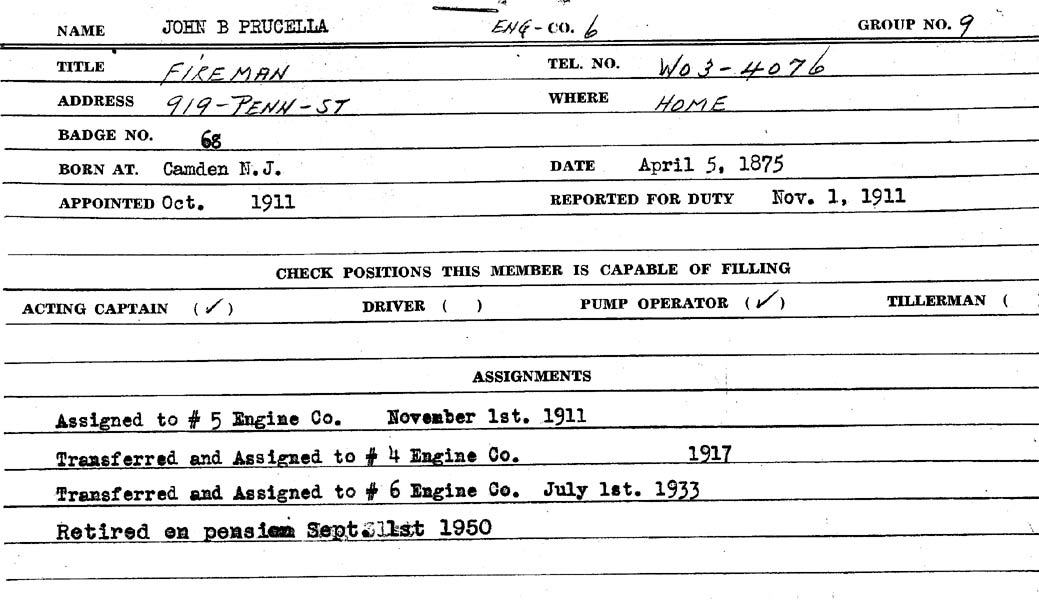 NAME JOHN B PRUCELLA ENG - CO. 6 GROUP NO. 9
TITLE FIREMAN TEL. NO. WO3-4076
ADDRESS 919-PENN-ST WHERE HOME
BADGE NO. 68
BORN AT. Camden N.J. DATE April 5, 1875
APPOINTED Oct. 1911 REPORTED FOR DUTY Nov. 1, 1911
CHECK POSITIONS THIS MEMBER IS CAPABLE OF FILLING
ACTING CAPTAIN (✓) DRIVER ( ) PUMP OPERATOR (✓) TILLERMAN (
ASSIGNMENTS
Assigned to # 5 Engine Co. November 1st. 1911
Transferred and Assigned to # 4 Engine Co. 1917
Transferred and Assigned to # 6 Engine Co. July 1st. 1933
Retired on pension Sept. 1950